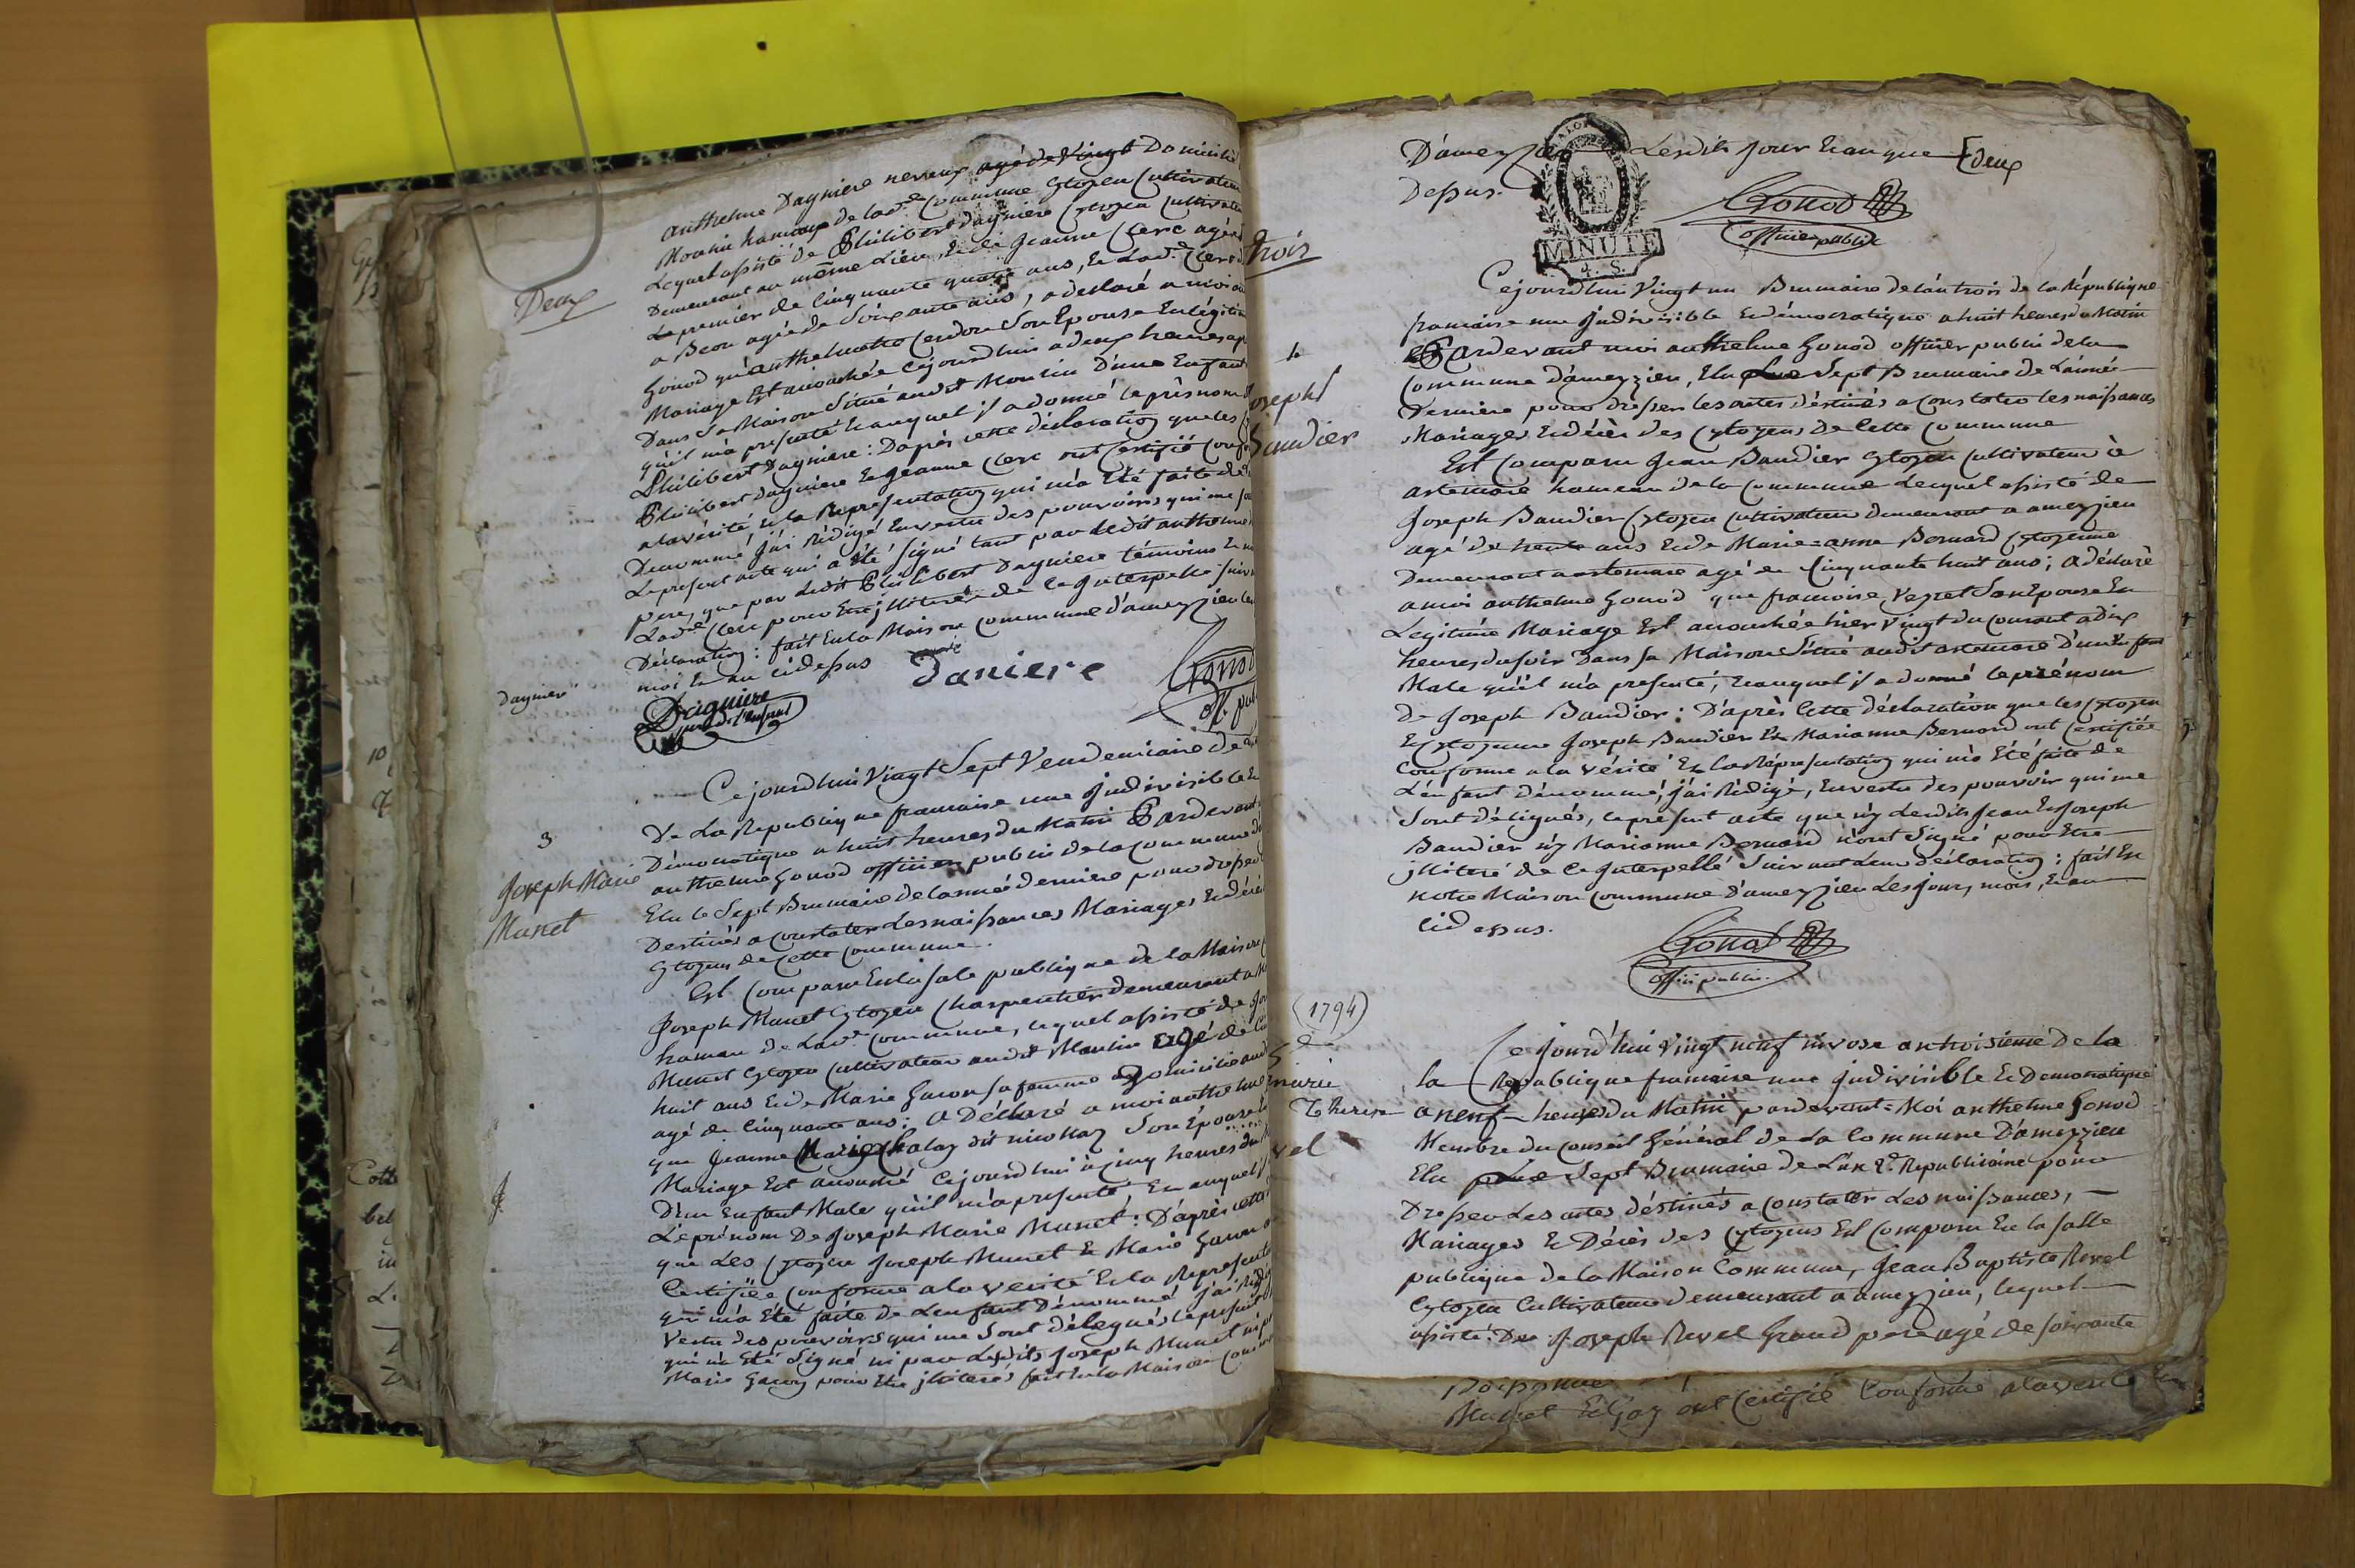 Deux
anthelme Dagniere nerveux agé de Vingt Domicilié
hameau de lad.e Commune Cytoyen Cultivateur
Lequel assisté de Philibert Dagniere Cytoyen Cultivate
Demeurant au même Lieu, Et de Jeanne Clerc agée
Le premier de Cinquante quatre ans, Et Lad.e Clerc
a Beon agée de Soixante ans, a déclaré a moi
Gonod qu'anthelmette Cerdon Son Epouse En légitim
Mariage Est accouchée Cejourdhui a deux heures
Dans Sa Maison Située audit Moulin D'une Enfant
qu'il m'a presenté Et auquel il a donné le prénom
Philibert Dagniere : Daprès cette déclaration que les
Philibert Dagniere Et Jeanne Clerc ont Certifié Conf
a la vérité Et la Représentation qui m'a Eté faite de
Denommé J'ai Rédigé En vertu des pouvoirs qui me
Le présent acte qui a Eté Signé tant par Ledit anthelme
pere, que par Ledit Philibert Dagniere témoins Et
Lad.e Clerc pour Etre illiterée de Ce Interpellé suiv
Déclaration : fait En la Maison Commune d'ameyzieu les
moi Et an cidessus
Daniere
Gonod
off. pub
dagnier
Dagniere
pere de l'enfant
3
Joseph Marie
Munet
Cejourdhui Vingt Sept Vendemiaire de
De La Republique francaise une Indivisible Et
Démocratique a huit heures du Matin Pardevant
anthelme Gonod officier public de la Commune d
Elu le Sept Brumaire de lannée derniere pour dresser
Destinés a Constater Les naissances Mariages Et décès
Cytoyens de Cette Commune.
Est Comparu En la sale publique de la Maison
Joseph Munet Cytoyen Charpentier demeurant a
hameau de Lad.e Commune, Lequel assisté de
Munet Cytoyen Cultivateur audit Moulin agé de
huit ans Et de Marie Gavon sa femme Domicilié aud
agé de Cinquante ans : a Déclaré a moi anthelme
que Jeanne Marie Chalay dit nicollaz Son Epouse
Mariage Est accouché Cejourdhui à Cinq heures du
D'un Enfant Male qu'il m'a presenté Et auquel il
Le prénom De Joseph Marie Munet : D'après cette
que Les Cytoyen Joseph Munet Et Marie Gavon
Certifiée Conforme a la vérité Et la Representa
qui m'a Eté faite de Lenfant Dénommé J'ai Rédi
Vertu des pouvoirs qui me Sont délegués le présent
qui n'a Eté Signé ni par Lesdits Joseph Munet ni p
Marie Gavon pour Etre illiterés fait En la Maison Com
D'ameyzieu Lesdits Jour Et an que
Dessus.
Deux
Gonod
officier public
MINUTE
4. S.
trois
4
Joseph
Baudier
Cejourdhui Vingt un Brumaire de lan trois de la République
francaise une Indivisible Et démocratique a huit heures du Matin
Pardevant moi anthelme Gonod officier public de la
Commune d'ameyzieu, Elu Le Sept Brumaire de Lannée
Derniere pour dresser les actes déstinés a Constater les naissances
Mariages Et décès des Cytoyens De Cette Commune
Est Comparu Jean Baudier Cytoyen Cultivateur à
artemare hameau de la Commune Lequel assisté de
Joseph Baudier Cytoyen Cultivateur demeurant a ameyzieu
agé de trente ans Et de Marie=anne Bernard Cytoyenne
Demeurant a artemare agé de Cinquante huit ans ; a déclaré
a moi anthelme Gonod que francoise Veyret Son Epouse En
Legitime Mariage Est accouchée hier Vingt du Courant a Dix
heures du soir Dans sa Maison Situé audit artemare D'un Enfant
Male qu'il m'a presenté, Et auquel il a donné le prénom
De Joseph Baudier : D'après Cette déclaration que les Cytoyen
Et Cytoyenne Joseph Baudier Et Marianne Bernard ont Certifiée
Conforme a la Vérité Et La Représentation qui m'a Eté faite de
L'enfant dénommé, j'ai Rédigé, En vertu des pouvoir qui me
Sont délegués, le présent acte que ny Lesdits Jean Et Joseph
Baudier ny Marianne Bernard n'ont Signé pour Etre
illiteré de Ce Interpellé Suivant Leur déclaration : fait En
notre Maison Commune d'ameyzieu Les jour, mois, Et an
Cidessus.
Gonod
officier public.
(1794)
5
marie
Therese
vel
Cejourd'hui Vingt neuf nivose an troisieme de la
la République francaise une Indivisible Et Démocratique
a neuf heures du Matin pardevant=Moi anthelme Gonod
Membre du Conseil Général de La Commune D'ameyzieu
Elu Le Sept Brumaire de L'an 2.e Republicaine pour
Dresser Les actes déstinés a Constater Les naissances,
Mariages Et Décès des Cytoyens Est Comparu En la salle
publique de la Maison Commune, Jean Baptiste Revel
Cytoyen Cultivateur demeurant a ameyzieu, lequel
assisté : De Joseph Revel Grand pere agé de soixante
Munet Et Goy ont Certifié Conforme a la vérité